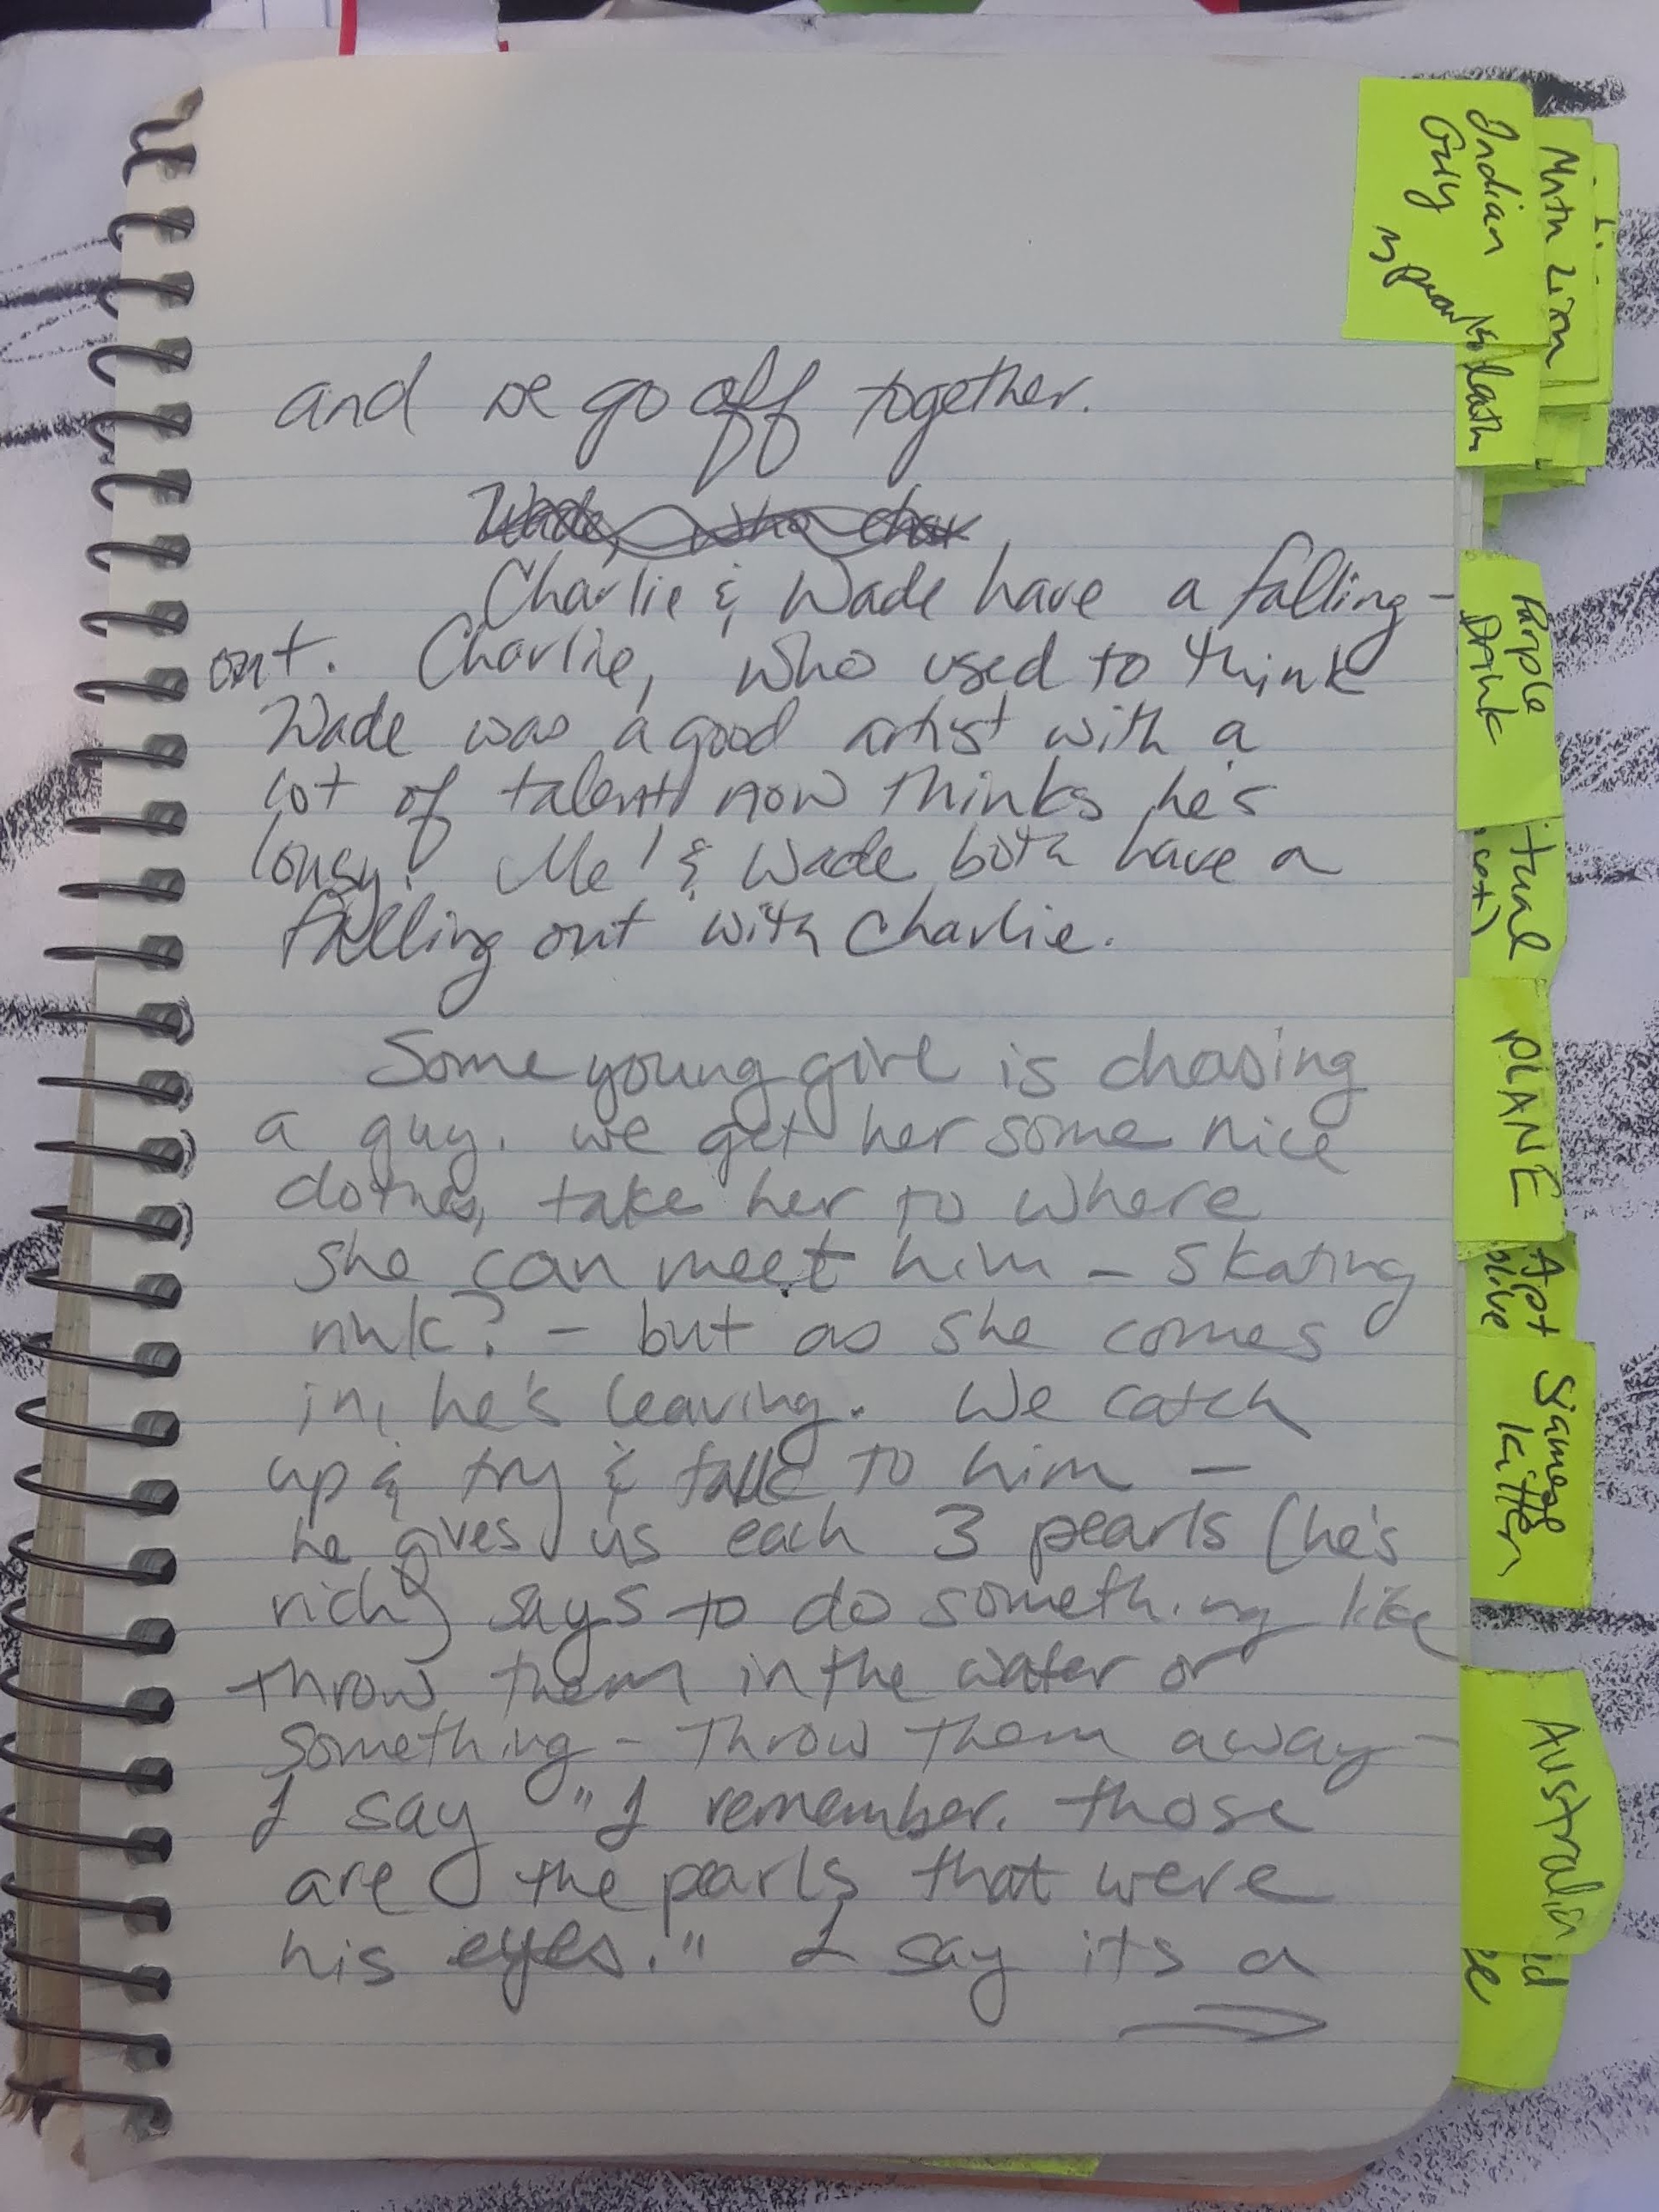 and we go off together.
Wade, who char
Charlie & Wade have a falling-
out. Charlie, who used to think
Wade was a good artist with a
lot of talent, now thinks he's
lousy. Me & Wade both have a
falling out with Charlie.
Some young girl is chasing
a guy. we get her some nice
clothes, take her to where
she can meet him - skating
rink? - but as she comes
in, he's leaving. We catch
up & try & talk to him -
he gives us each 3 pearls (he's
rich) says to do something like
throw them in the water or
something - Throw them away -
I say "I remember. those
are the pearls that were
his eyes." I say its a
Indian
Guy
3 pearls
Mntn Lion
Purple
Drink
PLANE
Apt
olive
Siamese
Kitten
Australia